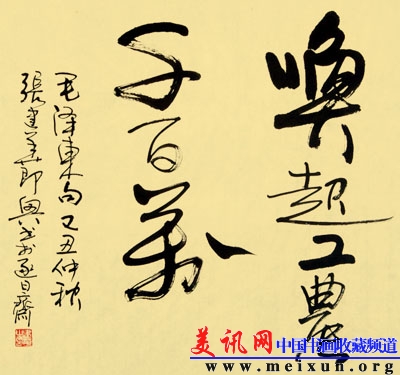 喚起工農
千百萬
毛澤東句己丑仲秋
張建即興書於逐日齋
美讯网 中国书画收藏频道
www.meixun.org